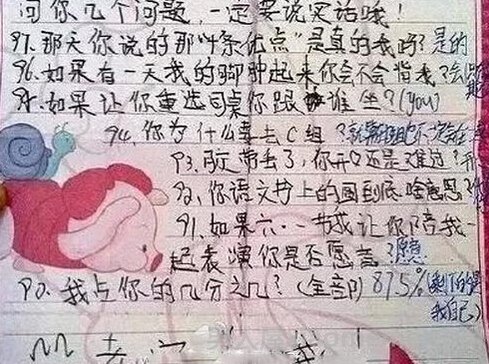 问你几个问题,一定要说实话哦!
97.那天你说的那"4条优点"是真的我吗?是的
96.如果有一天我的脚肿起来你会不会背我?会
95.如果让你重选同桌你跟谁坐?(you)
94.你为什么要去C组?
93.肯定带丢了,你开心还是难过?
92.你语文书上的图到底啥意思?
91.如果六·一节我让你陪我一
起表演你是否愿意?愿意
90.我占你的几分之几?(全部)87.5%(剩下的是
我自己)